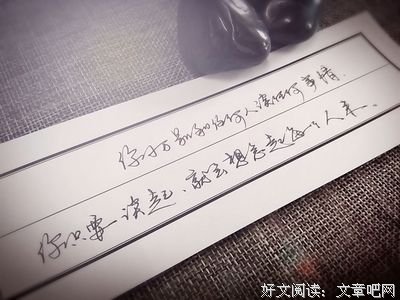 你千万别和任何人谈任何事情.
你只要一谈起、就会想念起每一个人来。
好文阅读:文章吧网